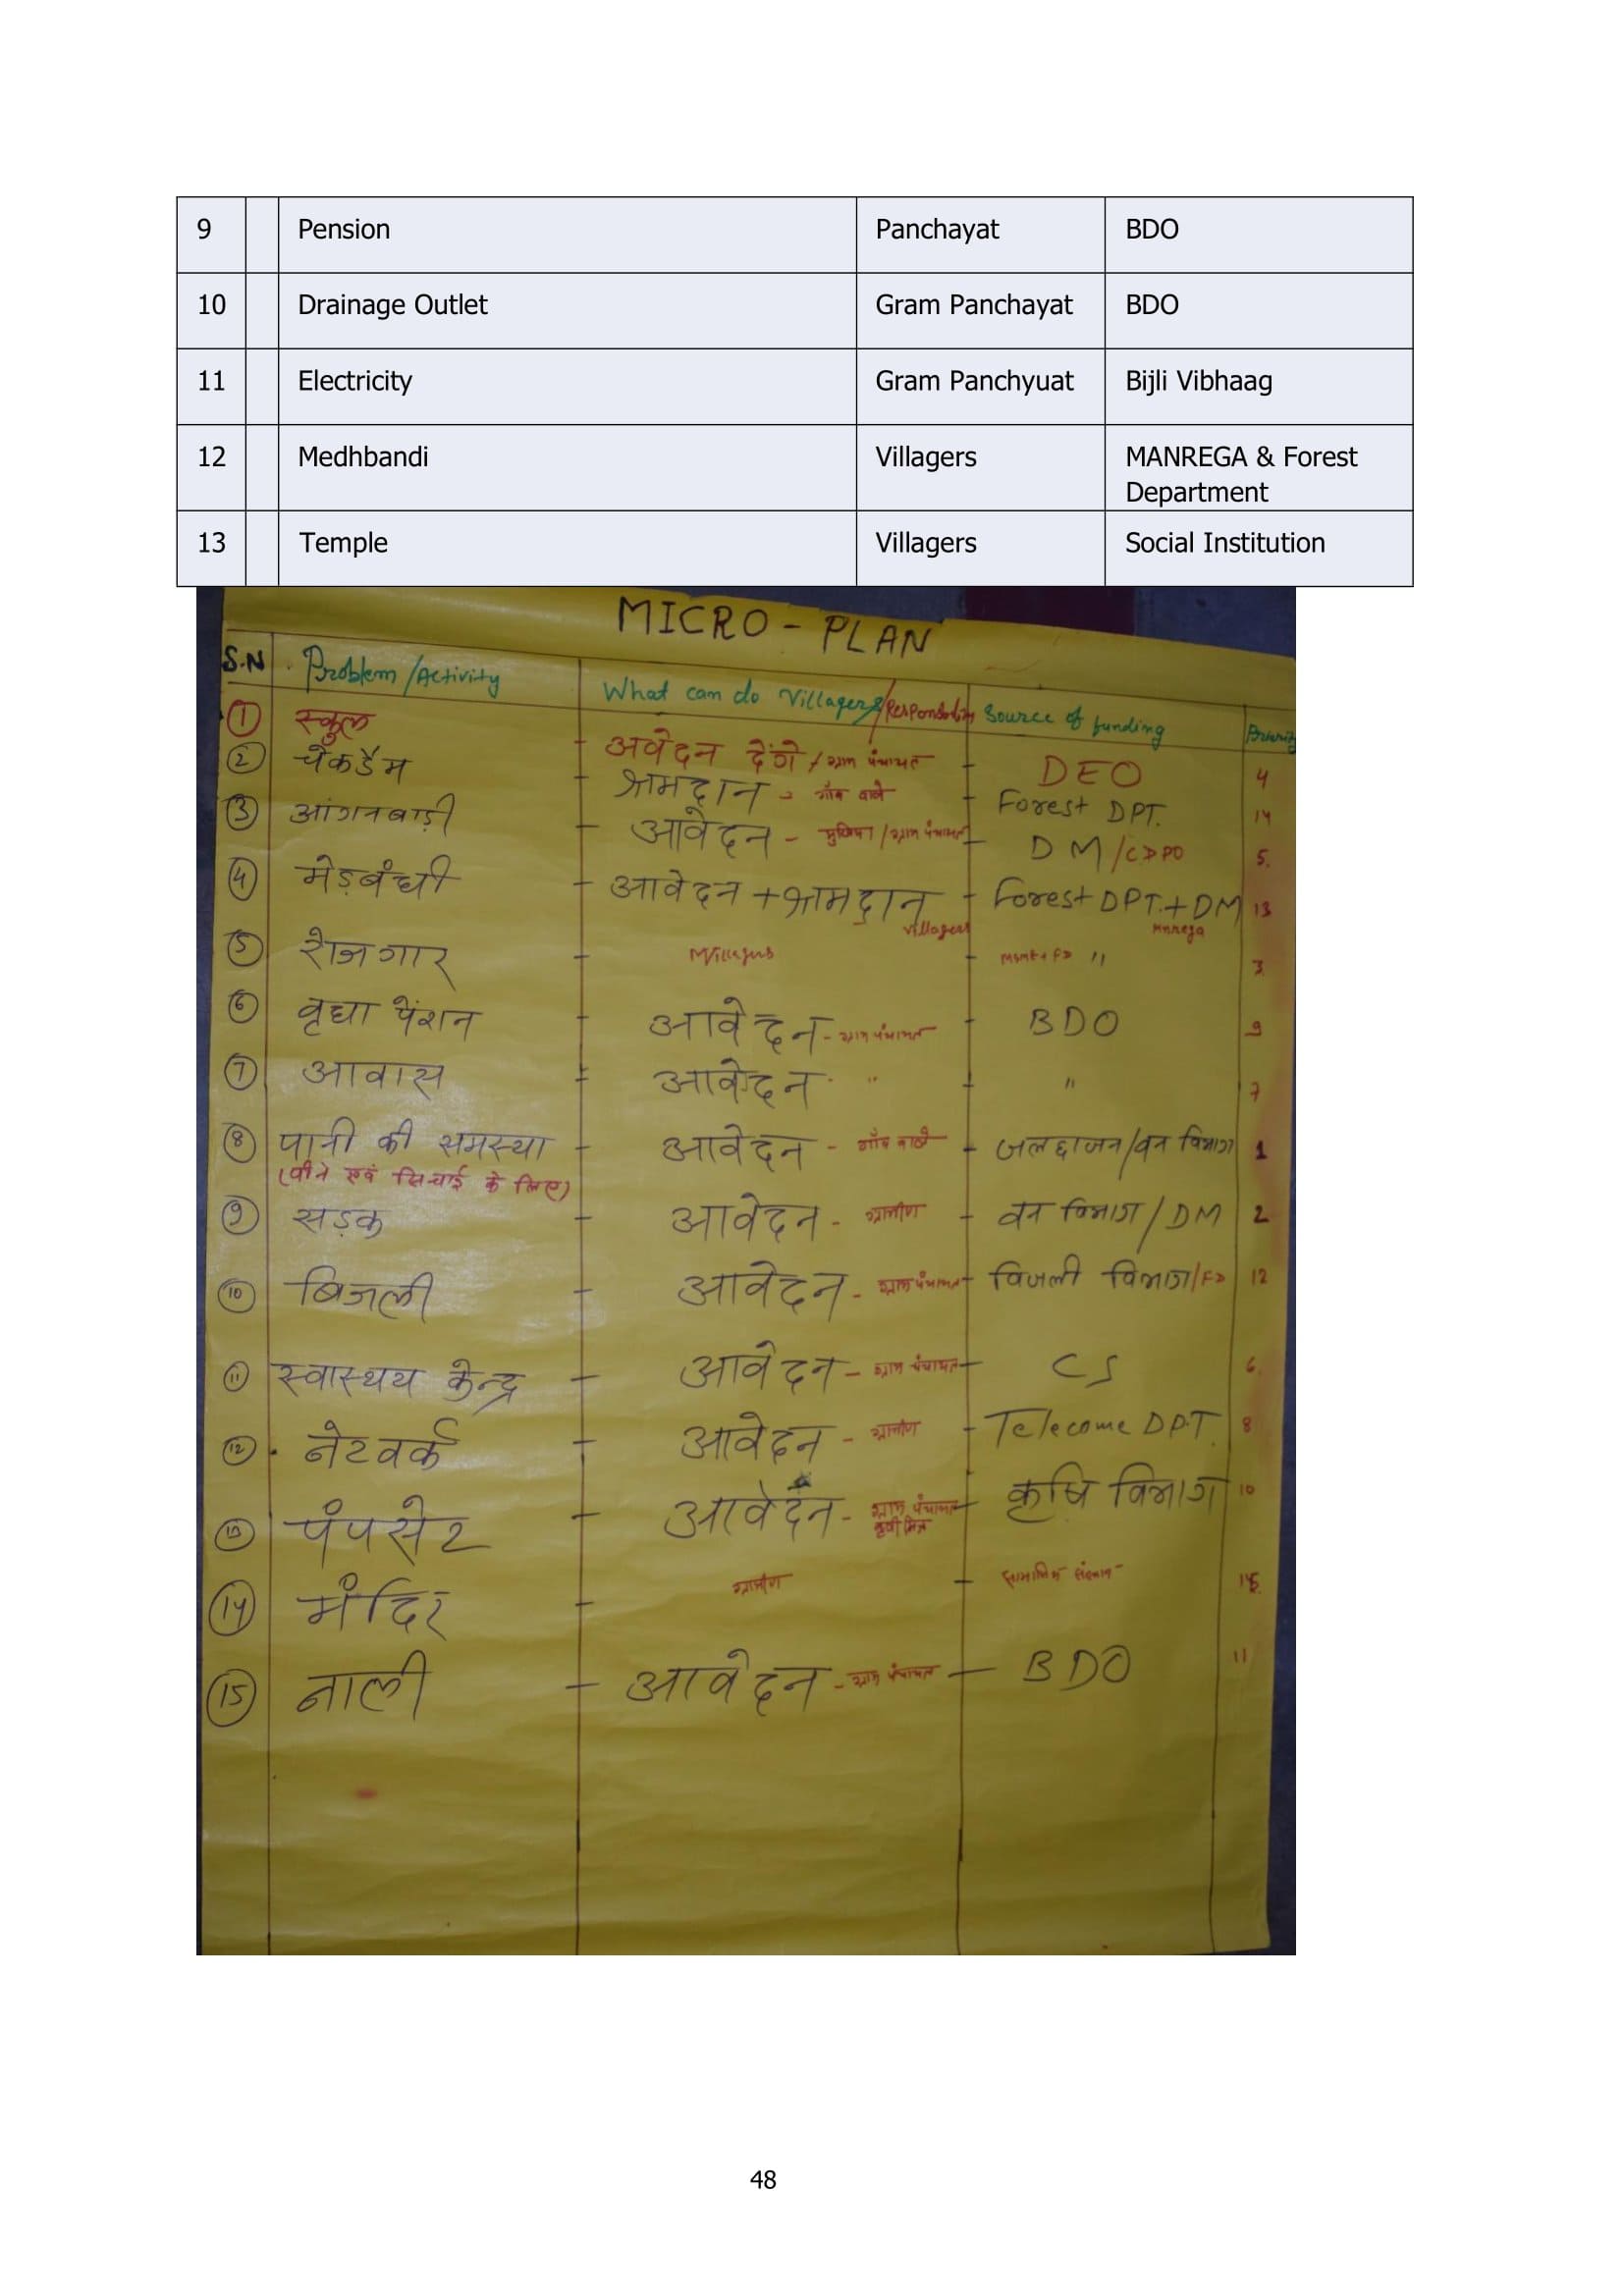 9 Pension Panchayat BDO
10 Drainage Outlet Gram Panchayat BDO
11 Electricity Gram Panchyuat Bijli Vibhaag
12 Medhbandi Villagers MANREGA & Forest
Department
13 Temple Villagers Social Institution
MICRO - PLAN
S.N Problem/Activity What can do Villagers/ Source of funding
1 स्कुल - अवेदन देंगे / ग्राम पंचायत - DEO 4
2 चेकडैम - श्रामदान - गाँव वाले - Forest DPT. 14
3 आंगनबाड़ी - आवेदन - मुखिया / ग्राम पंचायत - DM/CDPO 5.
4 मेड़बंधी - आवेदन + श्रामदान - Forest DPT. + DM 13
Villagers Mnrega
5 रोजगार - Villagers - " 3
6 वृधा पेंशन - आवेदन - ग्राम पंचायत - BDO 9
7 आवास - आवेदन " - " 7
8 पानी की समस्या - आवेदन - गाँव वाले - /वन विभाग 1
(पीने एवं सिचाई के लिए)
9 सड़क - आवेदन - ग्रामीण - वन विभाग / DM 2
10 बिजली - आवेदन - ग्राम पंचायत - विजली विभाग/FD 12
11 स्वास्थय केन्द्र - आवेदन - ग्राम पंचायत - CS 6.
12 नेटवर्क - आवेदन - ग्रामीण - Telecome DPT. 8
13 पंपसेट - आवेदन - ग्राम पंचायत - कृषि विभाग 10
कृषी मित्र
14 मंदिर - ग्रामीण - सामाजिक
15 नाली - आवेदन - ग्राम पंचायत - BDO 11
48